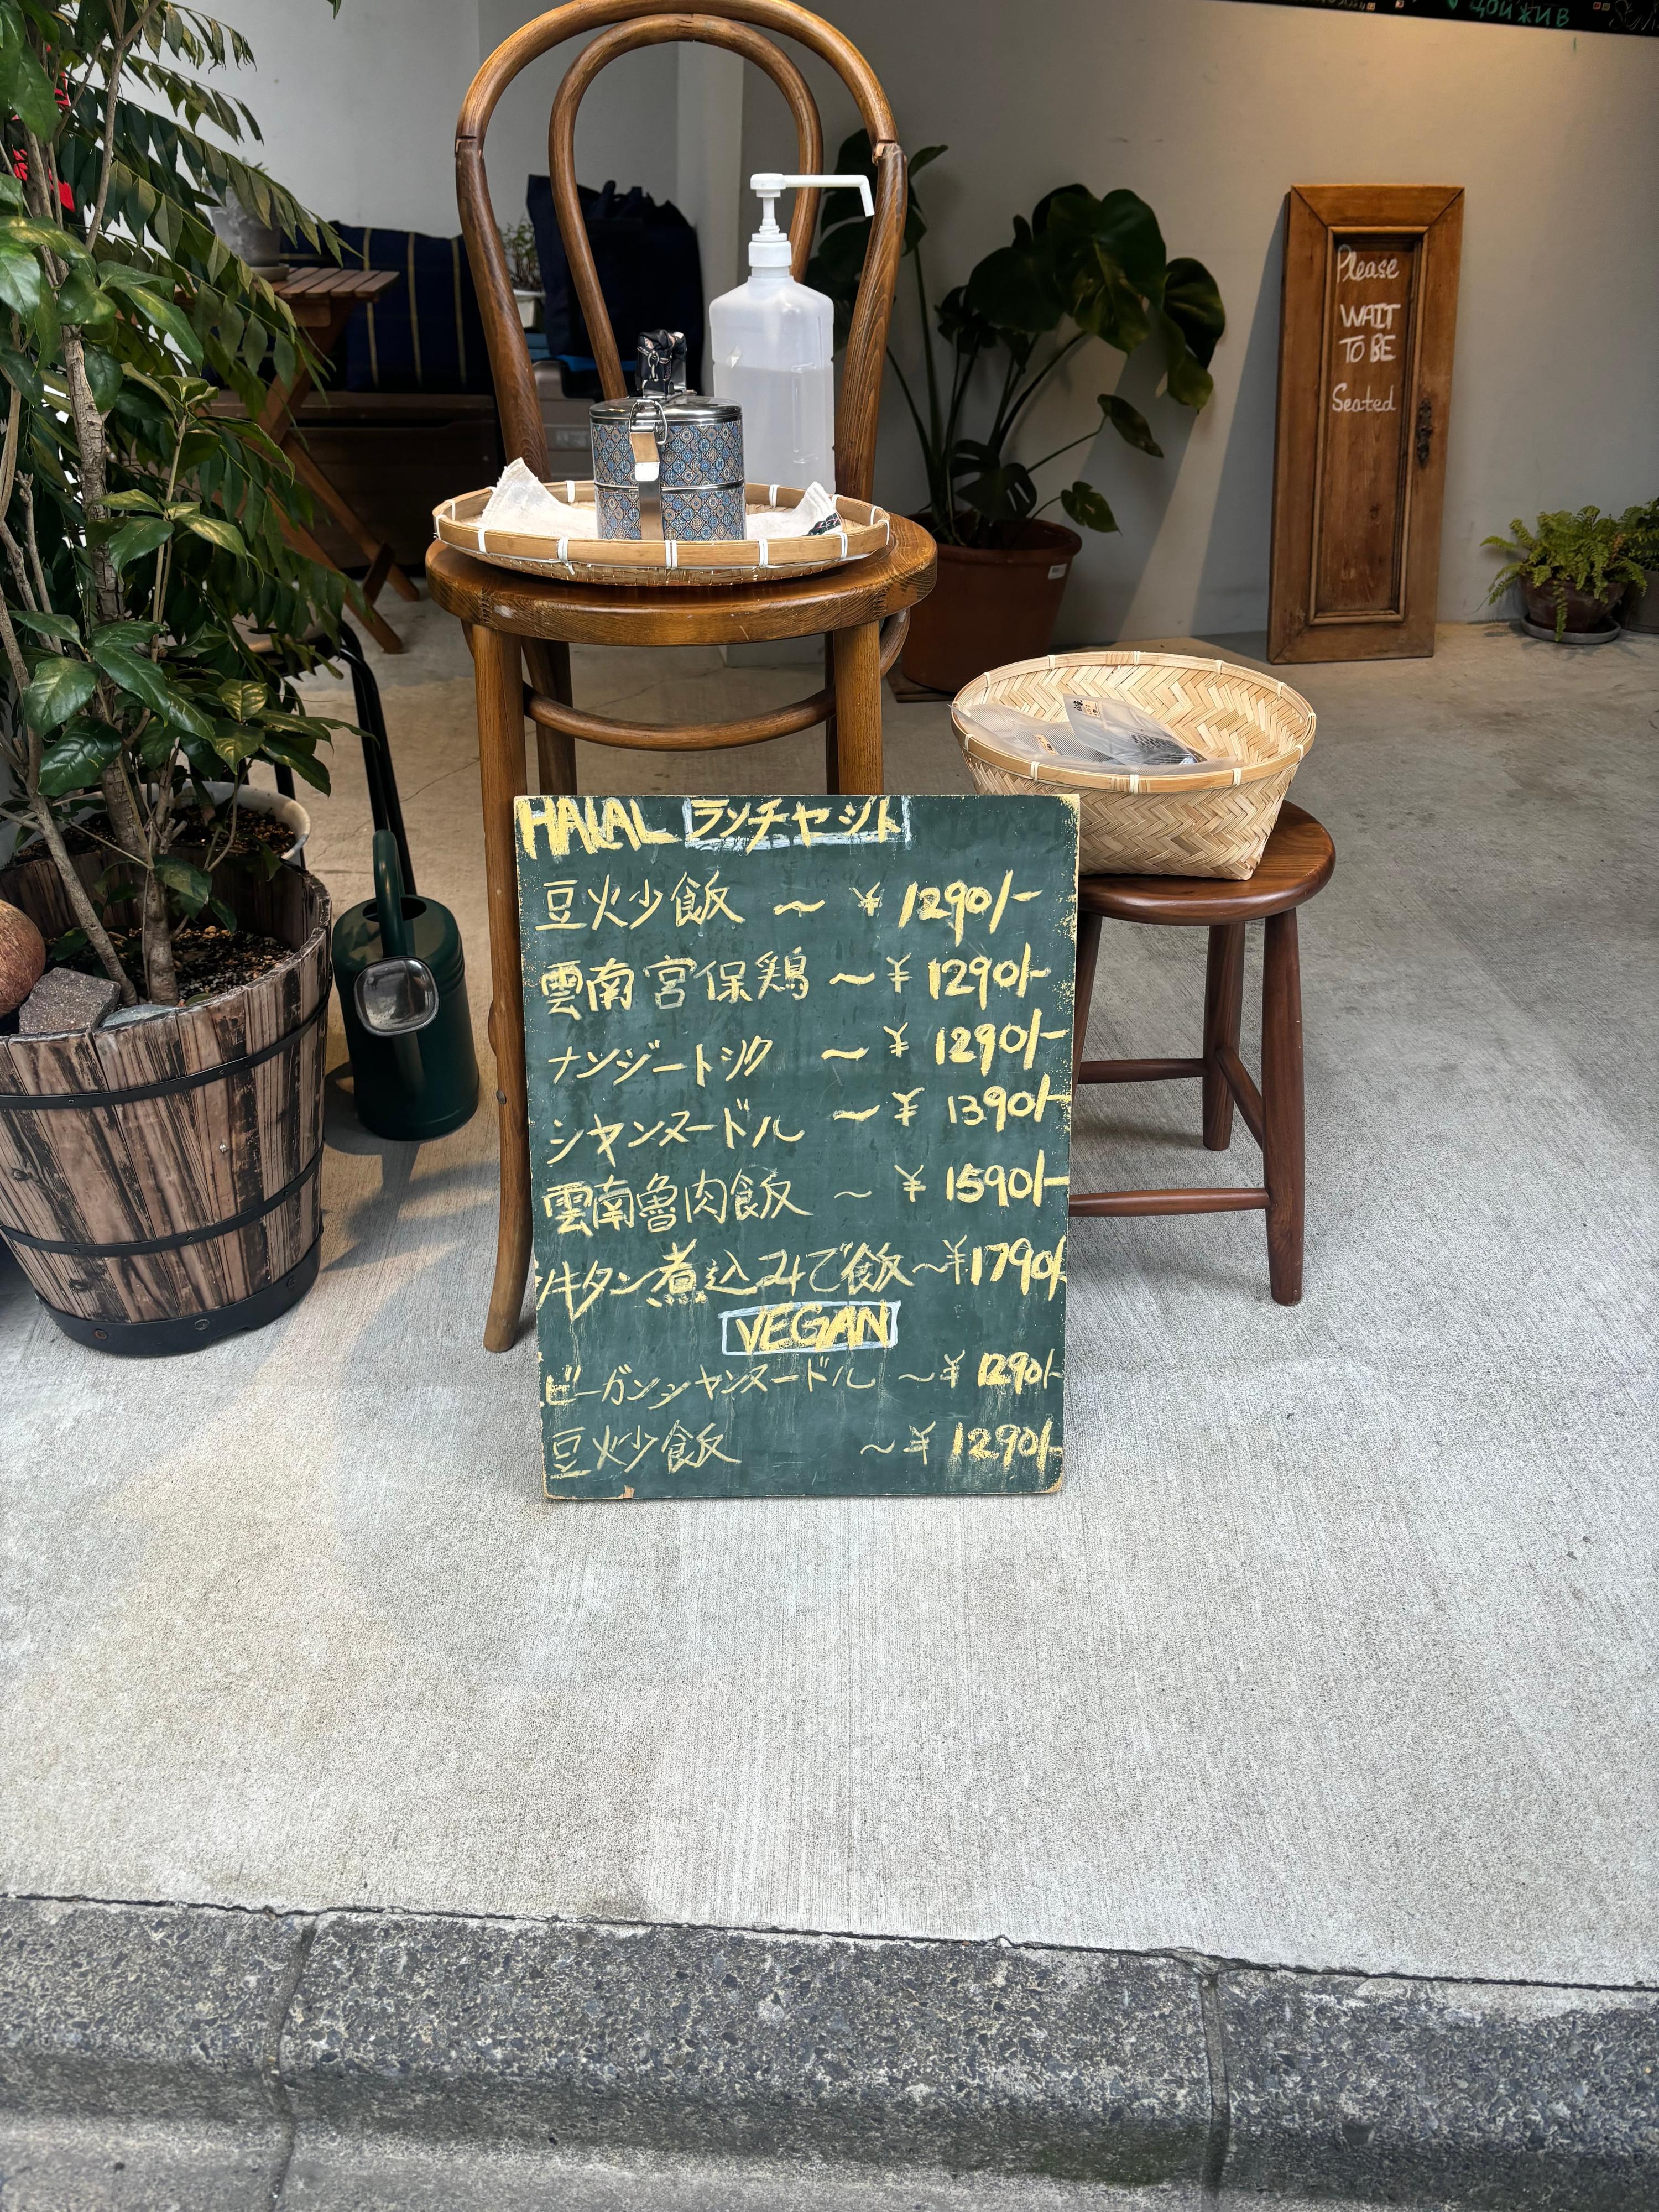 ЦОИ ЖИВ
Please
WAIT
TO BE
Seated
HALAL ランチセット
豆火少飯 ~ ¥ 1290/-
雲南宮保鶏 ~ ¥ 1290/-
ナンジートック ~ ¥ 1290/-
シャンヌードル ~ ¥ 1390/-
雲南魯肉飯 ~ ¥ 1590/-
牛タン煮込みで飯 ~ ¥1790/-
VEGAN
ビーガンシャンヌードル ~ ¥ 1290/-
豆炒飯 ~ ¥ 1290/-